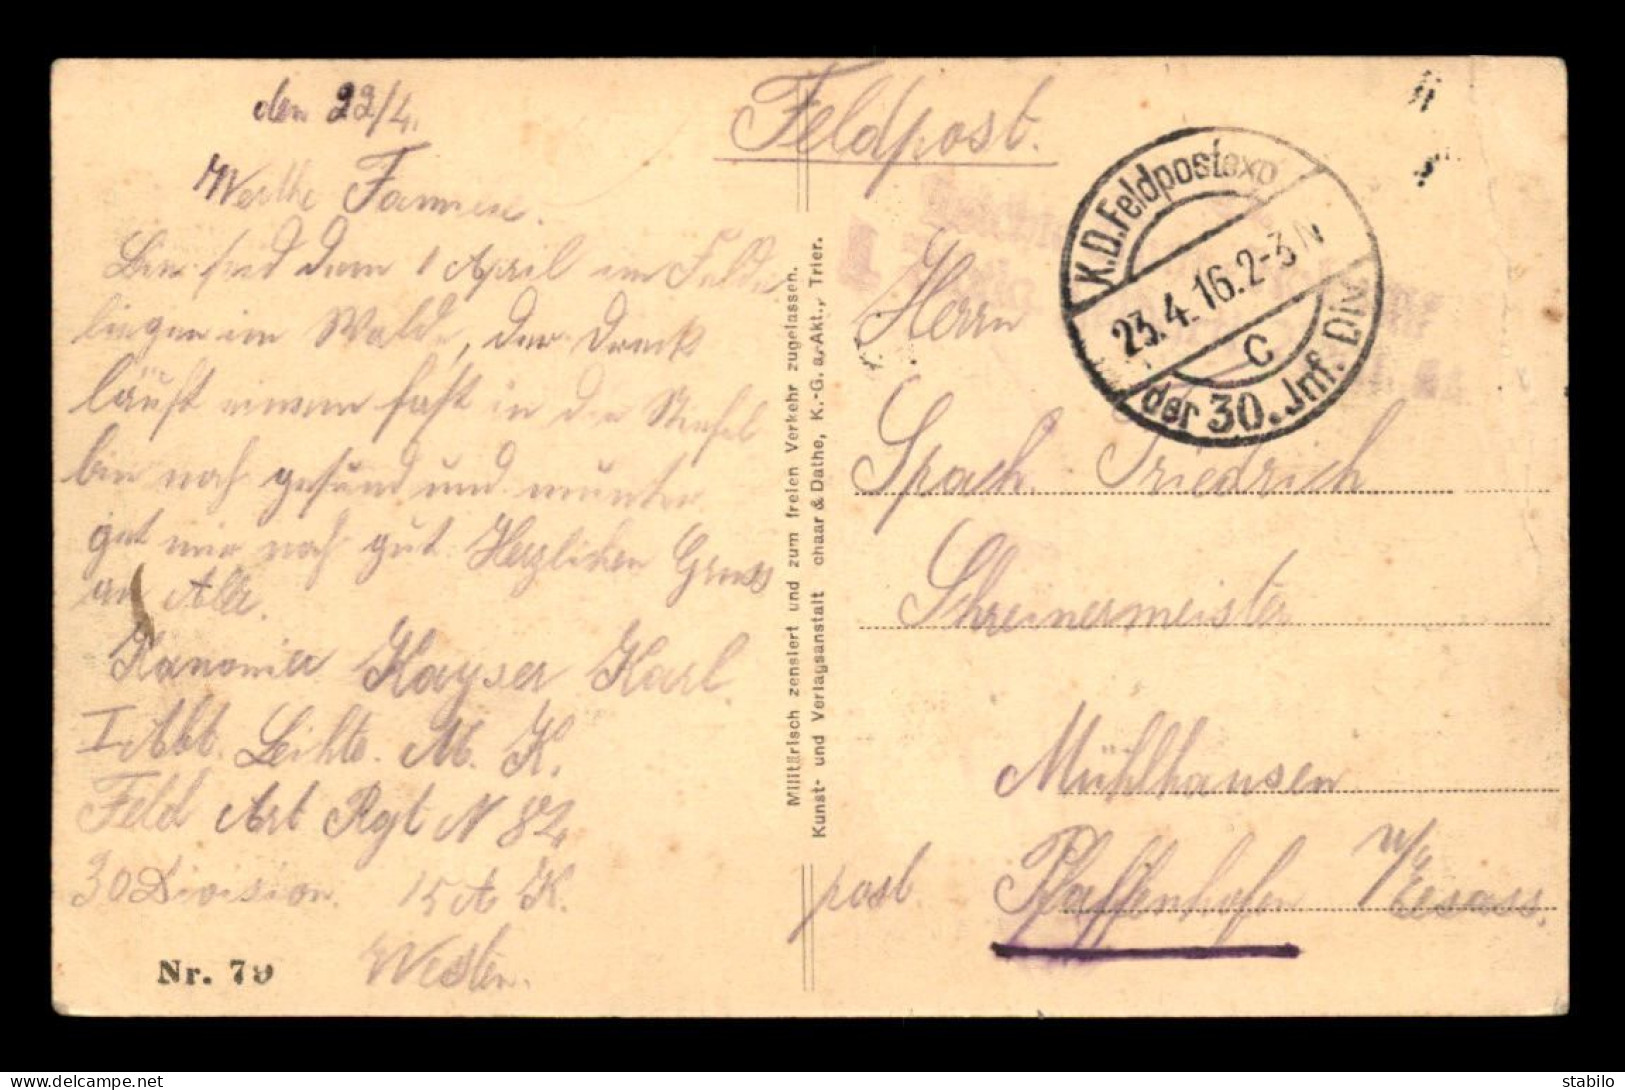 den 22/4.
Werthe Fammie.
Bin seid dem 1 April im Felde
liegen im Walde, der Dreck
läuft einem fast in die Stiefel
bin noch gesund und munter
get mir noch gut. Herzlichen Gruss
an Alle.
Kanonier Kayser Karl.
I Abt. Leichte. M. K.
Feld Art Rgt N 84
30 Division. 15 A K.
Westen.
Nr. 79
Militärisch zensiert und zum freien Verkehr zugelassen.
Kunst- und Verlagsanstalt chaar & Dathe, K.-G. a. Akt., Trier.
Feldpost.
K.D. Feldpostexp
23.4.16.2-3 N
c
der 30. Inf. Div.
Herrn
Spach Friedrich
Schreinermeister
Mühlhausen
post. Pfaffenhofen U/Elsass.
delcampe.net
stabilo